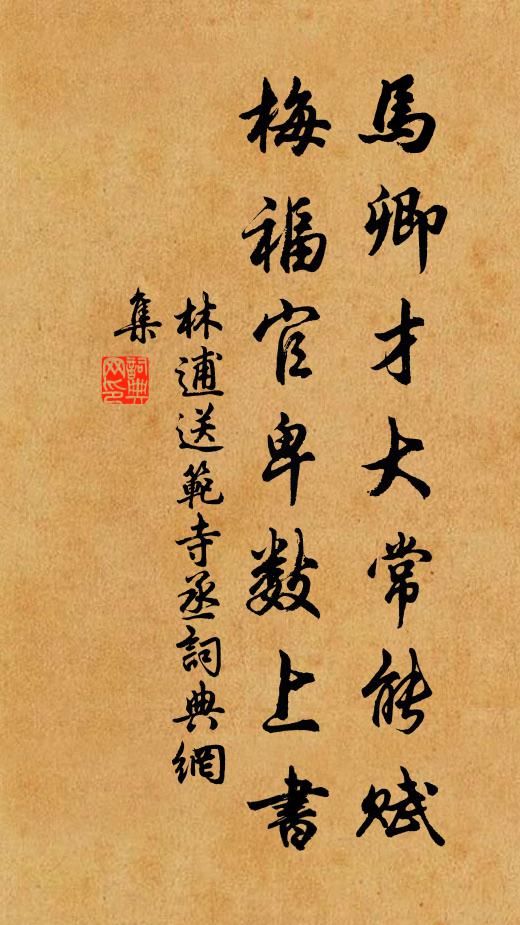 馬卿才大常能賦
梅福官卑數上書
林逋送範寺丞詞典網
集
詞典
网印